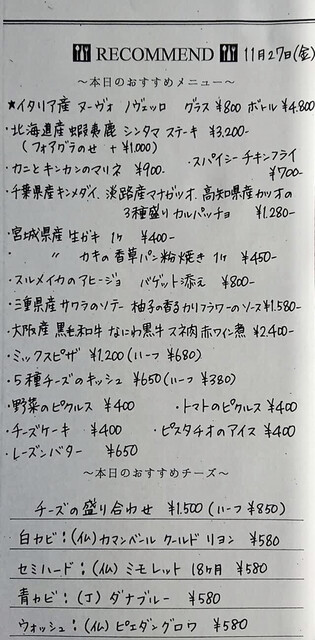 RECOMMEND 11月27日(金)
～本日のおすすめメニュー～
★イタリア産 ヌーヴォ ノヴェッロ グラス ¥800 ボトル ¥4.800
・北海道産 蝦夷鹿 シンタマ ステーキ ¥3,200-
(フォアグラのせ +¥1,000)
・スパイシーチキンフライ ¥700-
・カニとキンカンのマリネ ¥900-
・千葉県産キンメダイ、淡路産マナガツオ、高知県産カツオの
3種盛りカルパッチョ ¥1,280-
・宮城県産 生ガキ 1ヶ ¥400-
・ 〃 カキの香草パン粉焼き 1ヶ ¥450-
・スルメイカのアヒージョ バゲット添え ¥800-
・三重県産サワラのソテー 柚子の香るカリフラワーのソース ¥1.580-
・大阪産 黒毛和牛 なにわ黒牛 スネ肉赤ワイン煮 ¥2.400-
・ミックスピザ ¥1.200 (ハーフ ¥680)
・5種チーズのキッシュ ¥650 (ハーフ ¥380)
・野菜のピクルス ¥400 ・トマトのピクルス ¥400
・チーズケーキ ¥400 ・ピスタチオのアイス ¥400
・レーズンバター ¥650
～本日のおすすめチーズ～
チーズの盛り合わせ ¥1,500 (ハーフ ¥850)
白カビ:(仏)カマンベール クールド リヨン ¥580
セミハード:(仏)ミモレット 18ヶ月 ¥580
青カビ:(丁)ダナブルー ¥580
ウォッシュ:(仏)ピエダングロワ ¥580